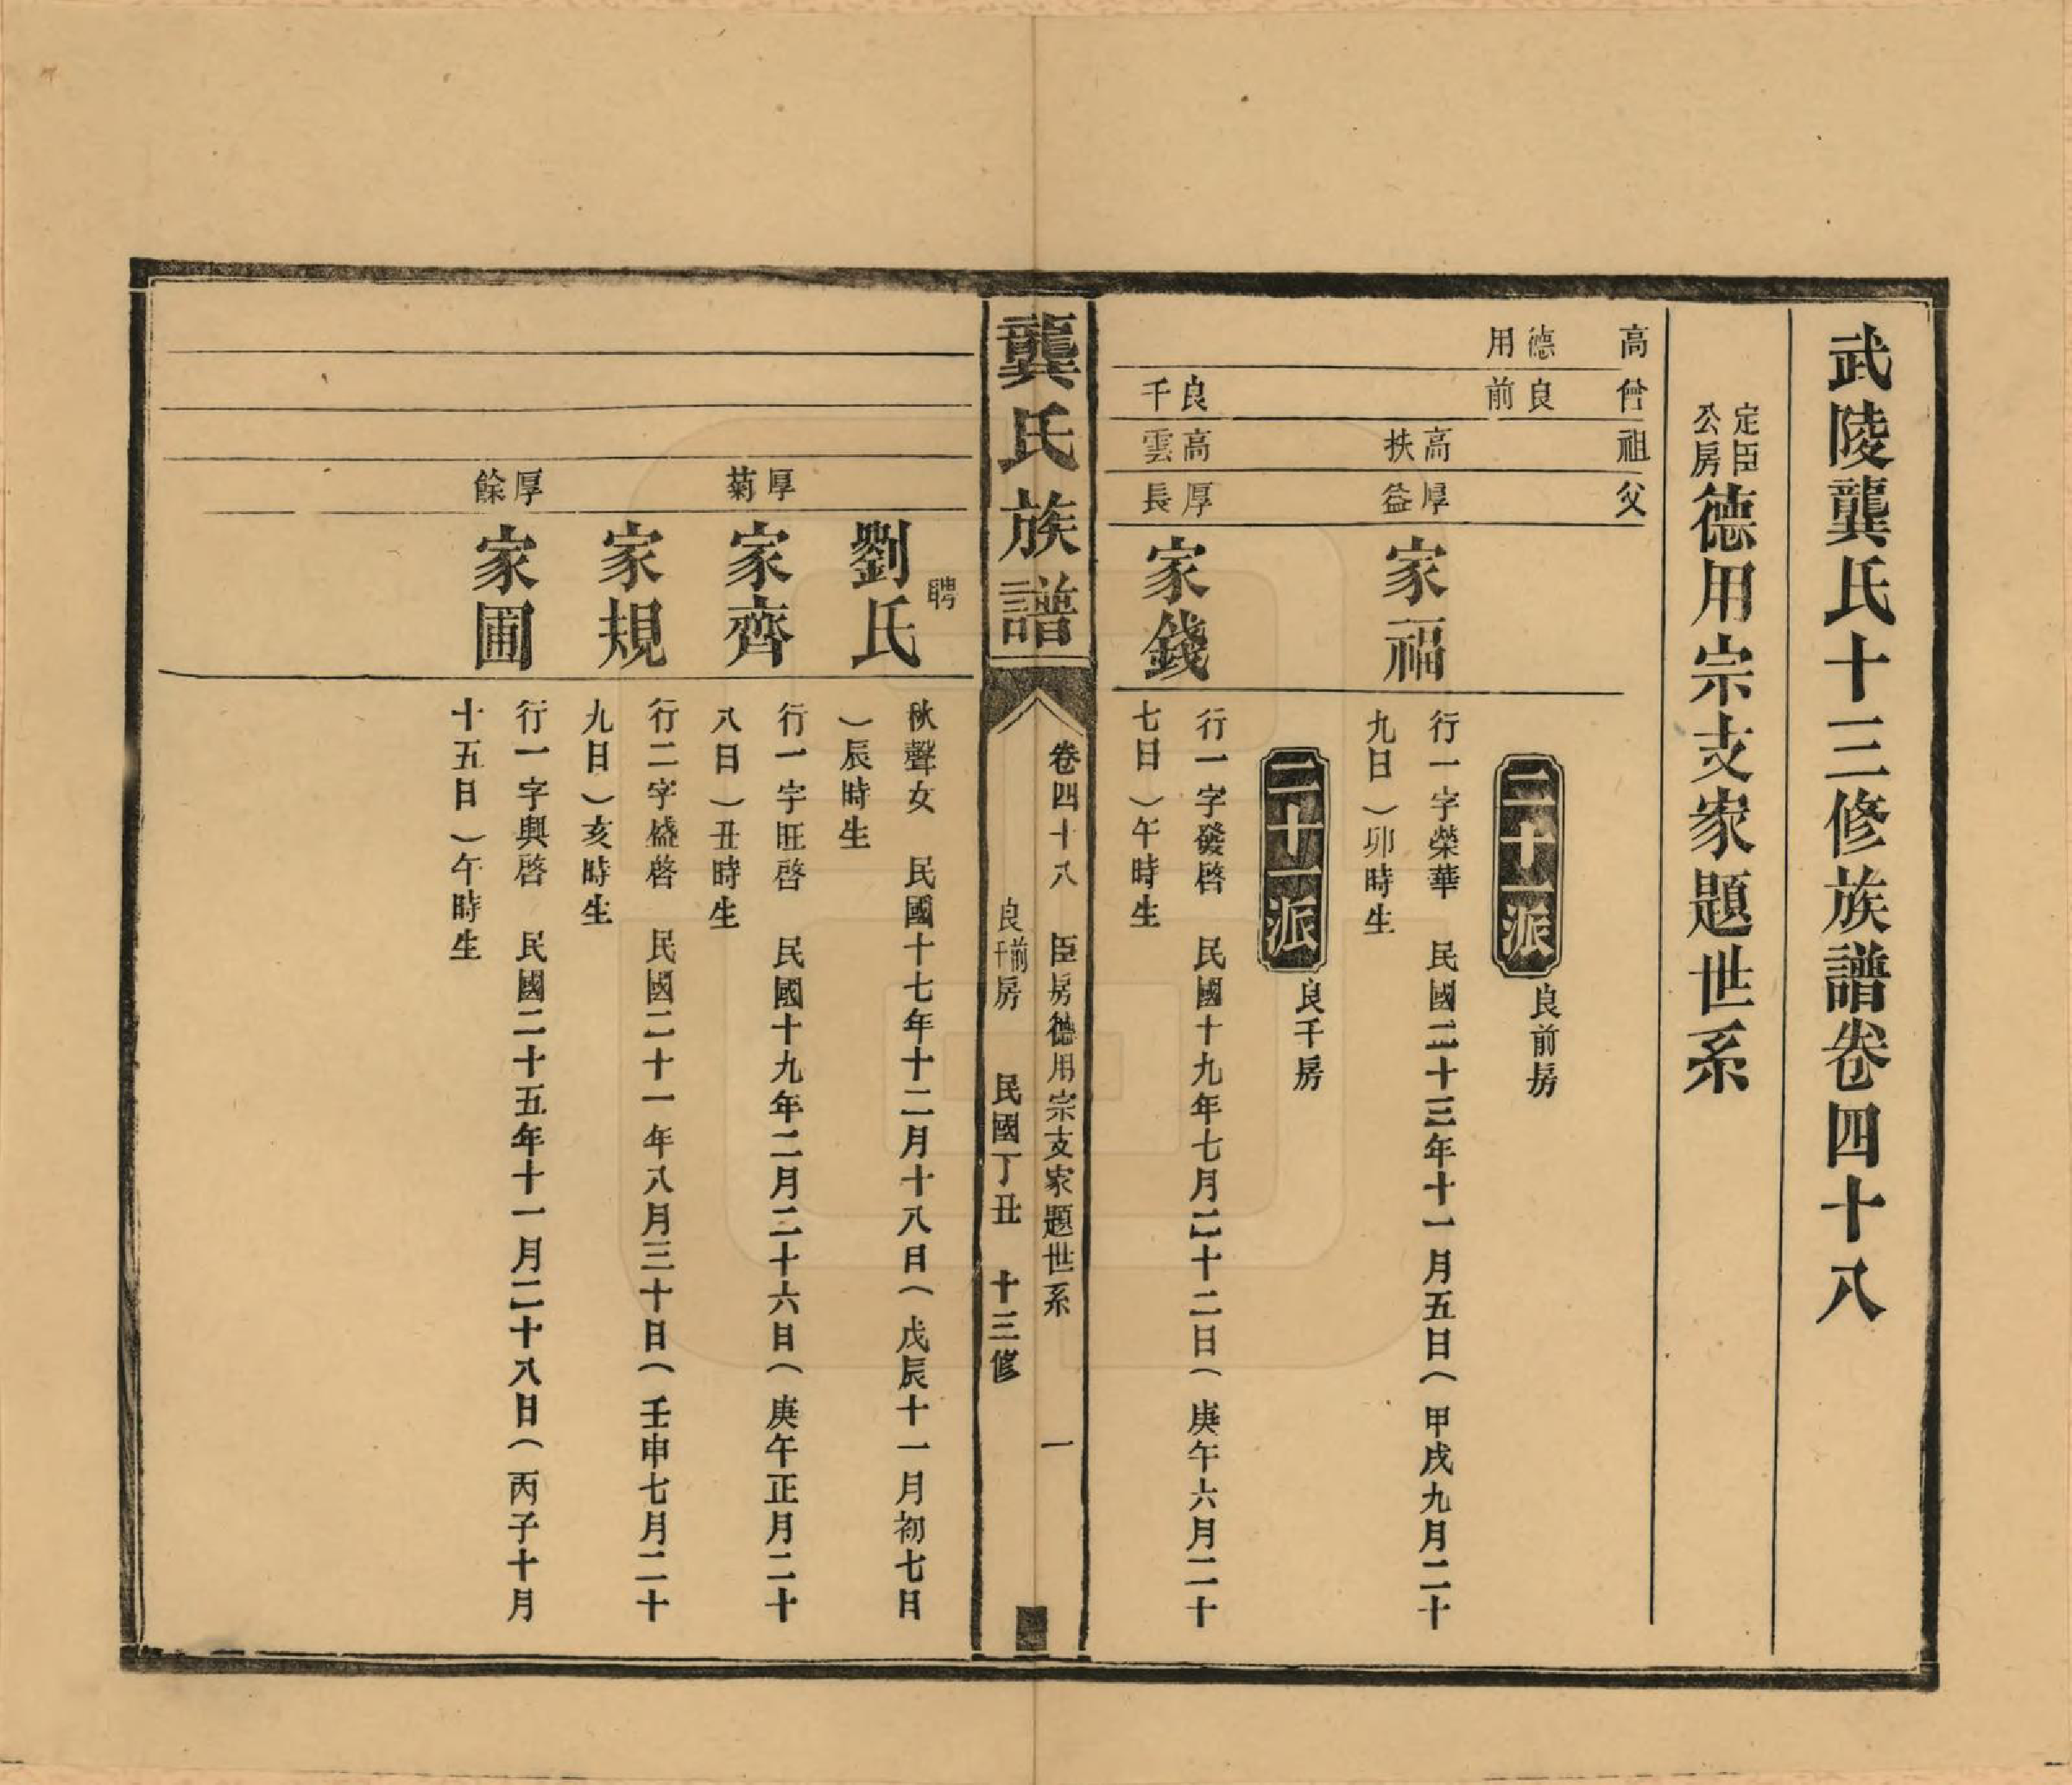 武陵龔氏十三修族譜卷四十八
定臣公房德用宗支家題世系
高 曾 祖 父
德用 良前
二十一派 良前房
高扶 厚益
家福
行一字榮華 民國二十三年十一月五日(甲戌九月二十
九日)卯時生
二十一派 良千房
良千 高雲 厚長
家錢
行一字發啓 民國十九年七月二十二日(庚午六月二十
七日)午時生
龔氏族譜
卷四十八 臣房德用宗支家題世系 一
良前千房 民國丁丑 十三修
聘
劉氏
秋聲女 民國十七年十二月十八日(戊辰十一月初七日
)辰時生
厚菊
家齊
行一字旺啓 民國十九年二月二十六日(庚午正月二十
八日)丑時生
家規
行二字盛啓 民國二十一年八月三十日(壬申七月二十
九日)亥時生
厚餘
家圃
行一字興啓 民國二十五年十一月二十八日(丙子十月
十五日)午時生